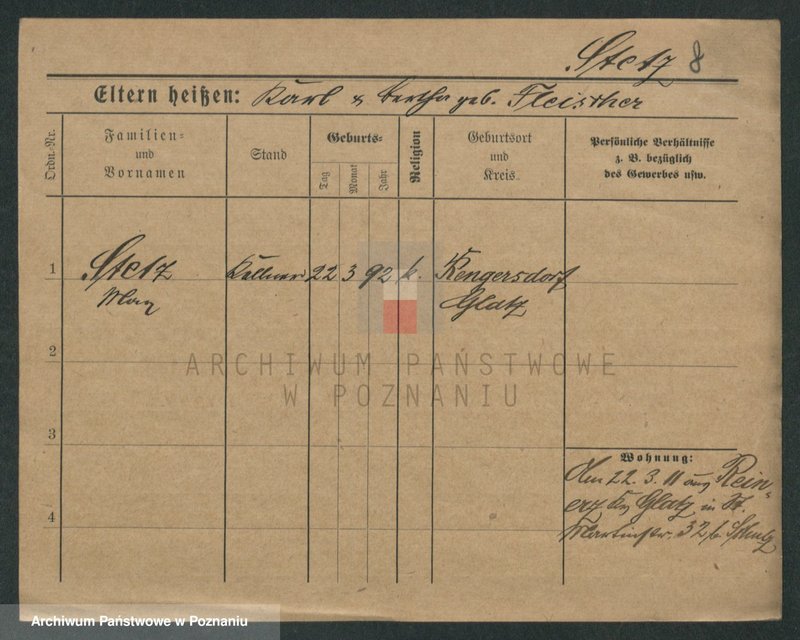 Stetz 8
Eltern heißen: Karl u Bertha geb. Fleischer
Ordn.-Nr.
Familien-
und
Vornamen
Stand
Geburts-
Tag
Monat
Jahr
Religion
Geburtsort
und
Kreis.
Persönliche Verhältnisse
z. B. bezüglich
des Gewerbes usw.
1 Stetz Kellner 22 3 92 k. Rengersdorf
Max Glatz
2
ARCHIWUM PAŃSTWOWE
W POZNANIU
3
Wohnung:
22. 3. 11 aus Rein-
erz Kr. Glatz in St.
4
Martinstr. 32 b.
Archiwum Państwowe w Poznaniu